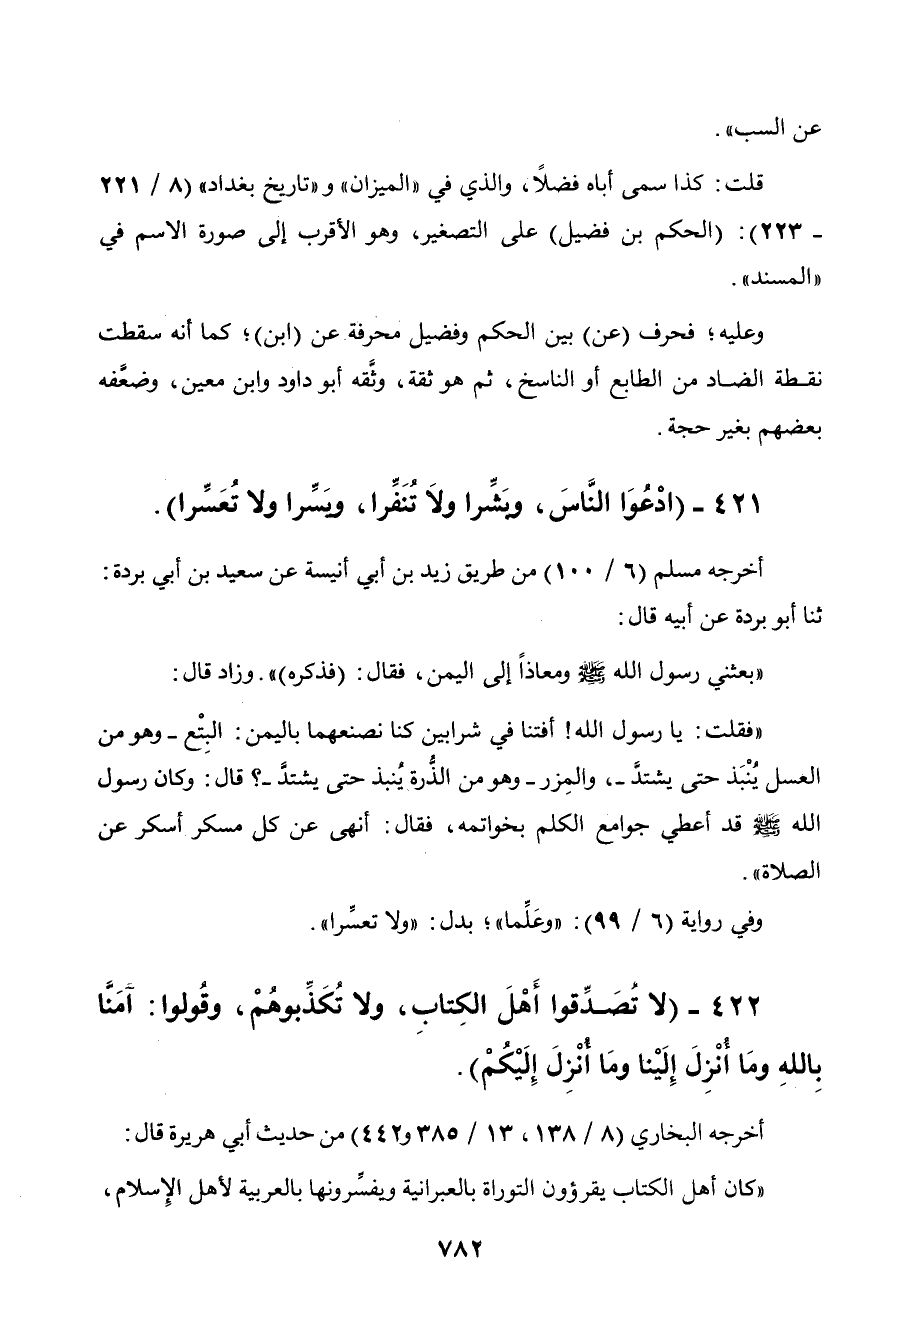 عن السب».
قلت: كذا سمى أباه فضلاً، والذي في «الميزان» و«تاريخ بغداد» (٨ / ٢٢١
ـ ٢٢٣): (الحكم بن فضيل) على التصغير، وهو الأقرب إلى صورة الاسم في
«المسند».
وعليه؛ فحرف (عن) بين الحكم وفضيل محرفة عن (ابن)؛ كما أنه سقطت
نقـطة الضـاد من الطابع أو الناسخ، ثم هو ثقة، وثَّقه أبو داود وابن معين، وضعَّفه
بعضهم بغير حجة.
٤٢١ ـ (ادْعُوَا النَّاسَ، وبَشِّرا ولاَ تُنَفِّرا، ويَسِّرا ولا تُعَسِّرا).
أخرجه مسلم (٦ / ١٠٠) من طريق زيد بن أبي أنيسة عن سعيد بن أبي بردة:
ثنا أبو بردة عن أبيه قال:
«بعثني رسول الله ﷺ ومعاذاً إلى اليمن، فقال: (فذكره)». وزاد قال:
«فقلت: يا رسول الله! أفتنا في شرابين كنا نصنعهما باليمن: البِتْع ـ وهو من
العسل يُنْبَذ حتى يشتدَّ ـ، والمِزر ـ وهو من الذُّرة يُنبذ حتى يشتدَّ ـ؟ قال: وكان رسول
الله ﷺ قد أعطي جوامع الكلم بخواتمه، فقال: أنهى عن كل مسكر أسكر عن
الصلاة».
وفي رواية (٦ / ٩٩): «وعَلِّما»؛ بدل: «ولا تعسِّرا».
٤٢٢ ـ (لا تُصَـدِّقوا أَهْلَ الكِتابِ، ولا تُكَذِّبوهُمْ، وقُولوا: آمَنَّا
بِاللهِ ومَا أُنْزِلَ إِلَيْنا ومَا أُنْزِلَ إِلَيْكُمْ).
أخرجه البخاري (٨ / ١٣٨، ١٣ / ٣٨٥ و٤٤٢) من حديث أبي هريرة قال:
«كان أهل الكتاب يقرؤون التوراة بالعبرانية ويفسِّرونها بالعربية لأهل الإسلام،
٧٨٢